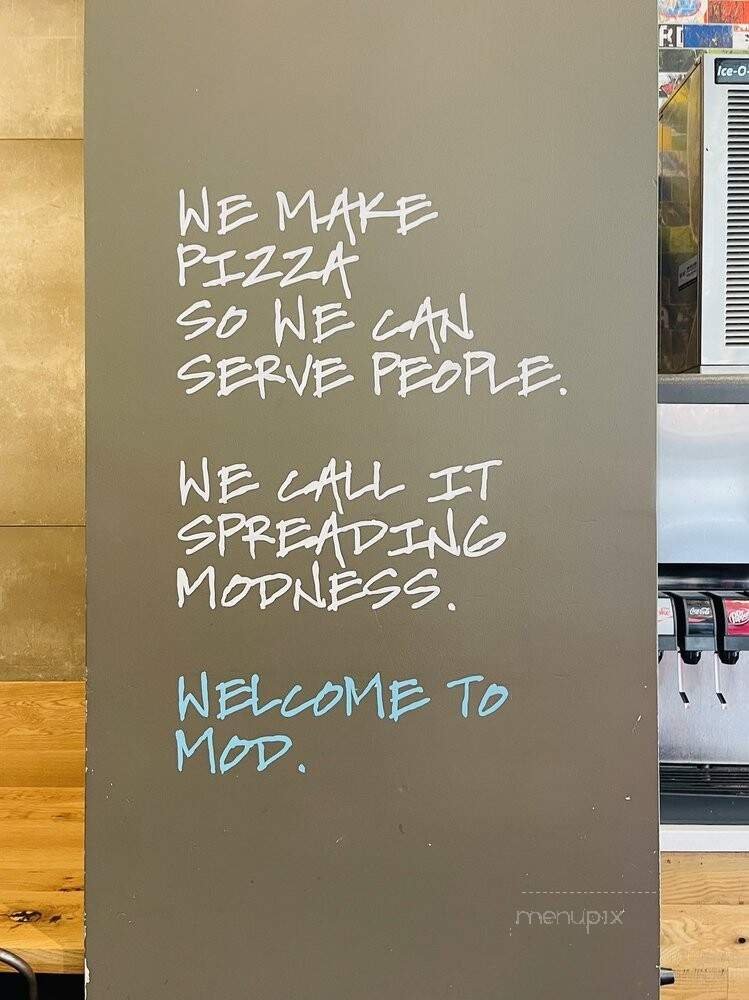 WE MAKE
PIZZA
SO WE CAN
SERVE PEOPLE.
WE CALL IT
SPREADING
MODNESS.
WELCOME TO
MOD.
Ice-O-
Coca-Cola
Dr Pepper
menupix